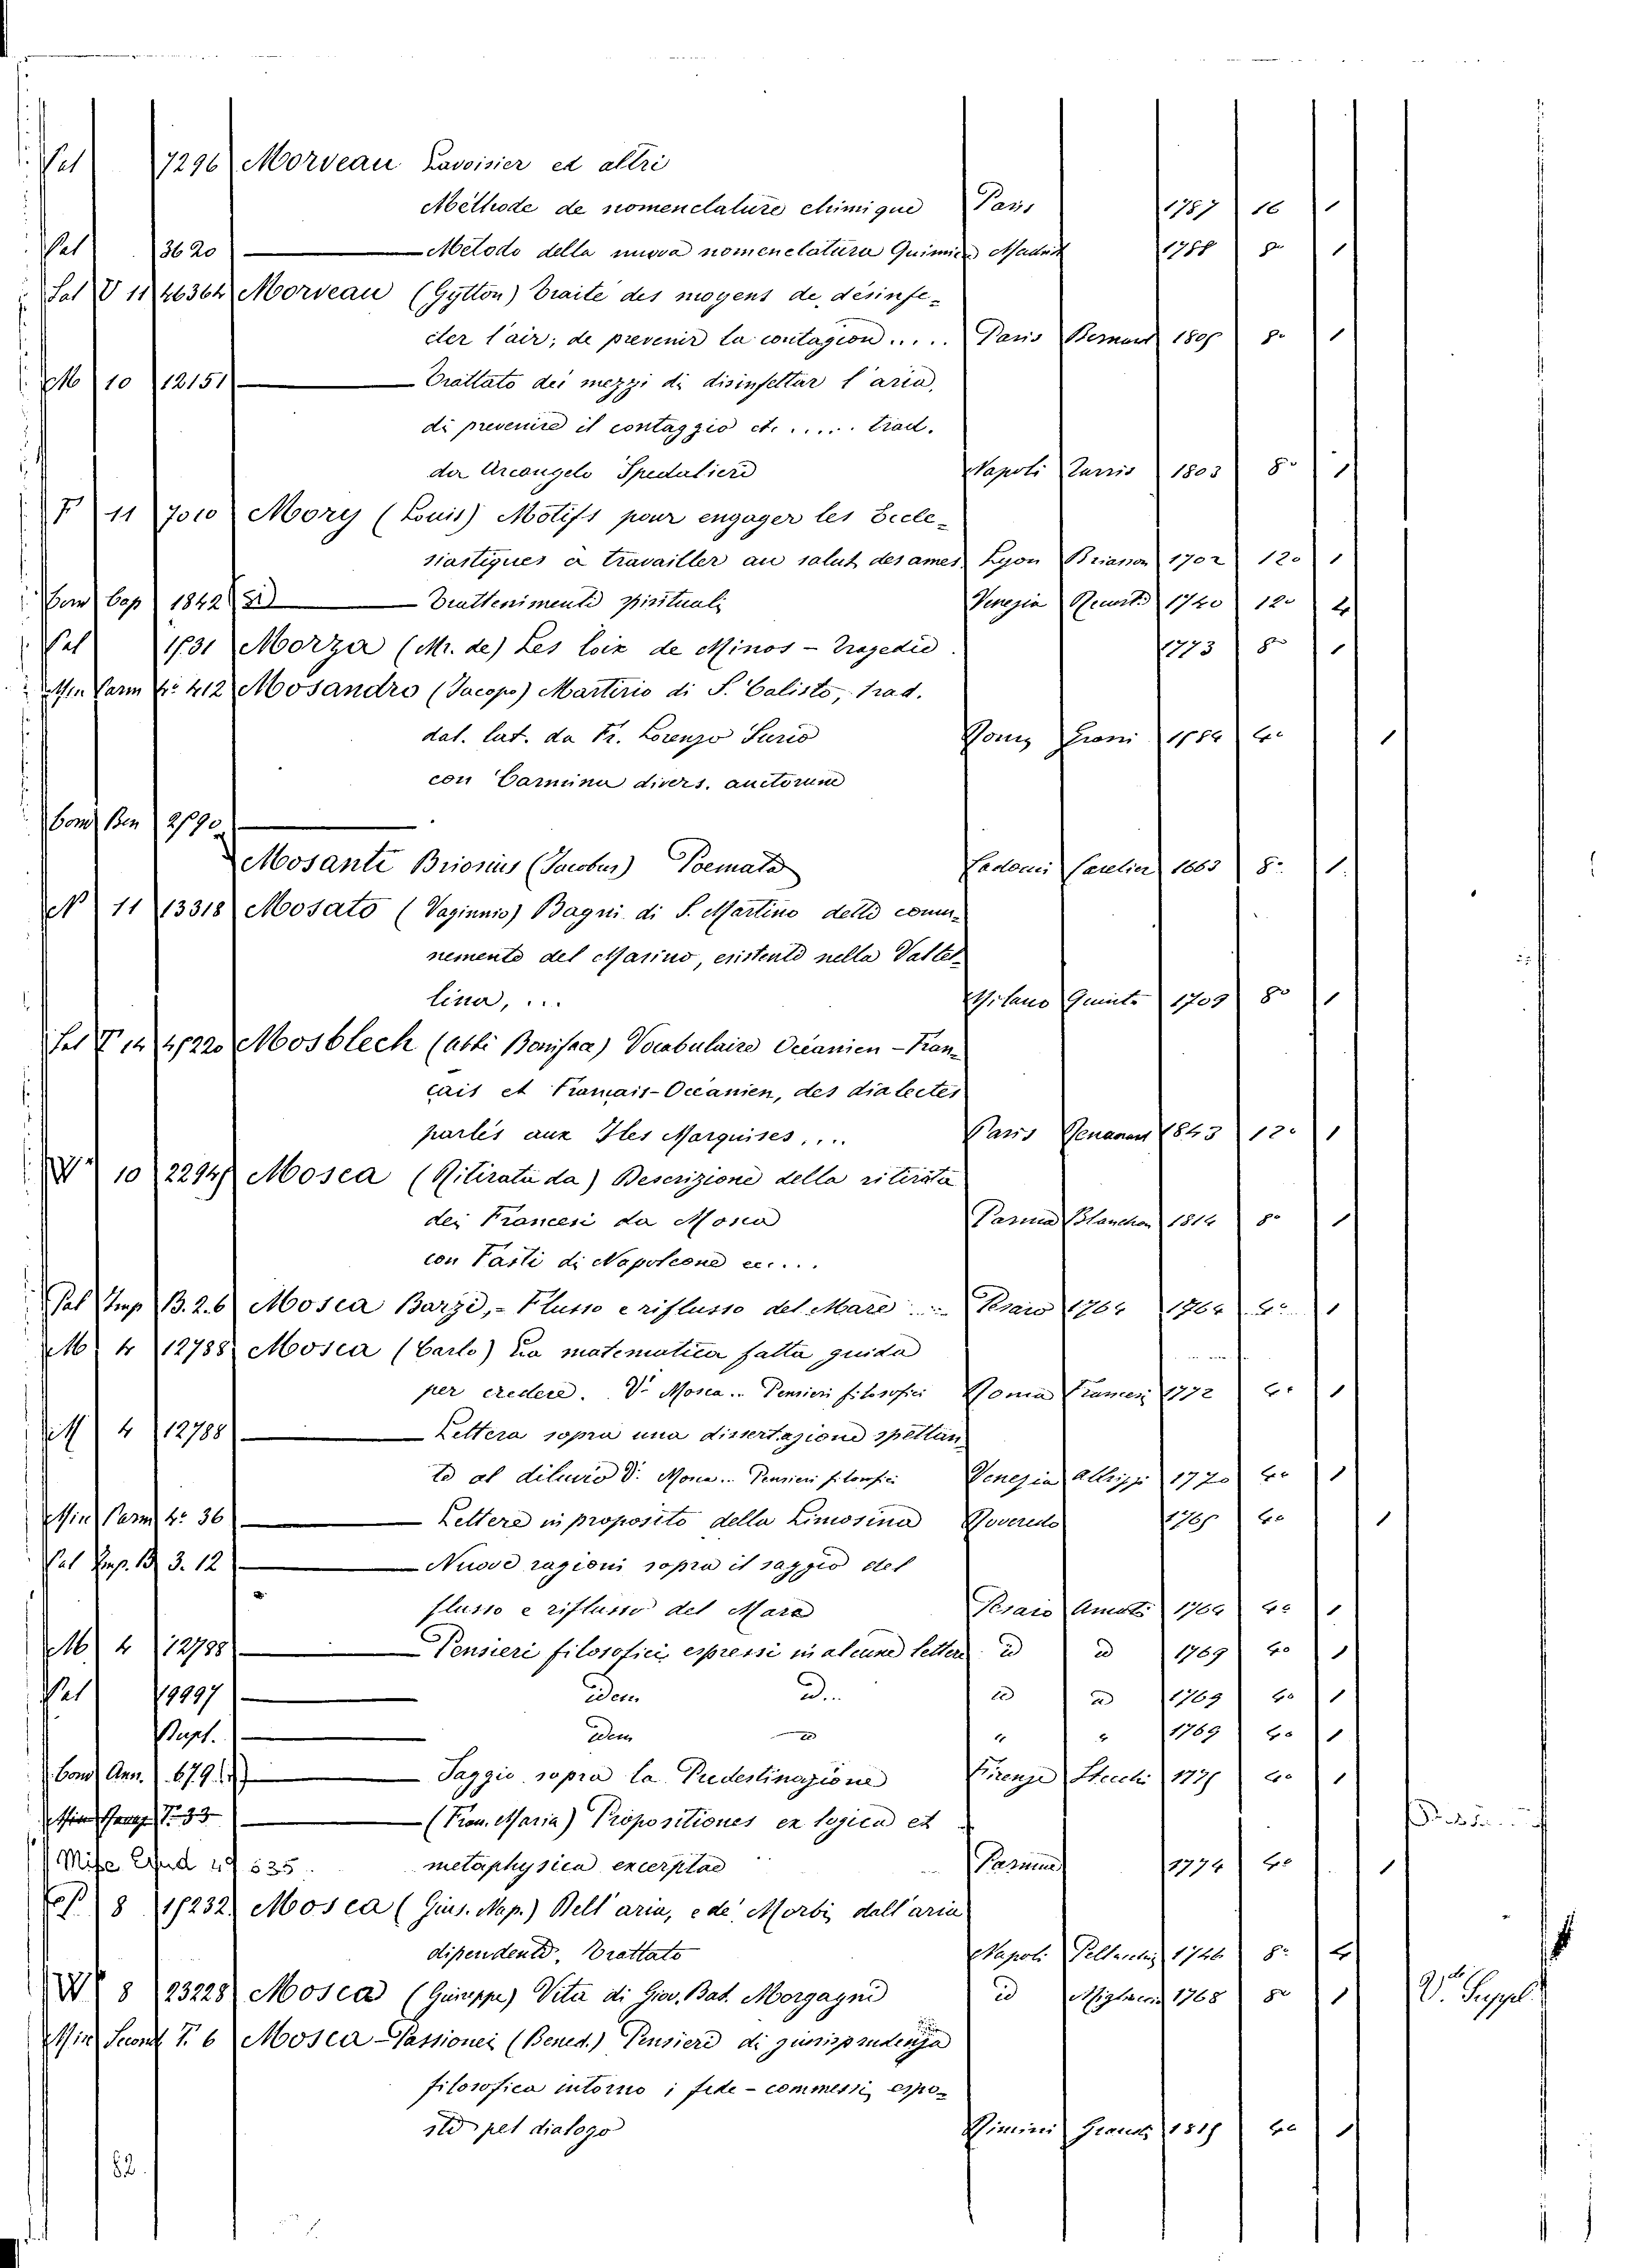 Pal 7296 Morveau Lavoisier ed altri
Méthode de nomenclature chimique Paris 1787 16 1
Pal 3620 — Metodo della nuova nomenclatura Quimica Madrid 1788 8° 1
Sal V 11 46364 Morveau (Gytton) Traité des moyens de désinfe-
cter l'air; de prevenir la contagion ..... Paris Bernard 1805 8° 1
M 10 12151 — Trattato dei mezzi di disinfettar l'aria,
di prevenire il contaggio et. ..... trad.
der Arcangelo Spedaliere Napoli 1803 8° 1
F 11 7010 Mory (Louis) Motifs pour engager les Eccle-
siastiques à travailler au salut des ames Lyon Briasson 1702 12° 1
Com Cap 1842 — Trattenimenti spirituali Venezia Recurti 1740 12° 2
Pal 1731 Morza (Mr. de) Les loix de Minos - Tragedie 1773 8° 1
Min Parm 4° 412 Mosandro (Jacopo) Martirio di S. Calisto, trad.
dal. lat. da Fr. Lorenzo Surio Roma 1584 4° 1
con Carmina divers. auctorum
Com Ben 2790 —
Mosanti Briosius (Jacobus) Poemata Cadomi Cavelier 1663 8° 1
N 11 13318 Mosato (Vaginnio) Bagni di S. Martino detto comu-
nemente del Masino, esistente nella Valtel-
lina, ... Milano Quinto 1709 8° 1
Sal T 14 47220 Mosblech (abbé Boniface) Vocabulaire Océanien - Fran-
cais et Francais-Océanien, des dialectes
parlés aux Iles Marquises .... Paris Renouard 1843 12° 1
W 10 22947 Mosca (Ritirata da) Descrizione della ritirata
dei Francesi da Mosca Parma Blanchon 1814 8° 1
con Fasti di Napoleone ec....
Pal Imp B. 2. 6 Mosca Barzi, - Flusso e riflusso del Mare ... Pesaro 1764 1764 4° 1
M 4 12788 Mosca (Carlo) La matematica fatta guida
per credere. V. Mosca... Pensieri filosofici Roma 1772 4° 1
M 4 12788 — Lettera sopra una dissertazione spettan-
te al diluvio V. Mosca... Pensieri filosofici Venezia Albrizzi 1770 4° 1
Min Parm 4° 36 — Lettere in proposito della Limosina Roveredo 1765 4° 1
Pal Imp. B 3. 12 — Nuove ragioni sopra il saggio del
flusso e riflusso del Mare Pesaro Amati 1764 4° 1
M 4 12788 — Pensieri filosofici espressi in alcune lettere id id 1769 4° 1
Pal 19997 — idem id.. id id 1769 4° 1
Dupl. — idem id " " 1769 4° 1
Com Ann. 679 — Saggio sopra la Predestinazione Firenze Stecchi 1771 4° 1
— (Fran. Maria) Propositiones ex logica et
Misc 49 535. metaphysica excerptae Parma 1774 4° 1
P 8 17232 Mosca (Gius. Nap.) Dell'aria, e de' Morbi dall'aria
dipendenti, Trattato Napoli Pellecchia 1746 8° 2
W 8 23228 Mosca (Giuseppe) Vita di Giov. Bat. Morgagni id Migliacci 1768 8° 1 V. Suppl.
Min Second T. 6 Mosca - Passionei (Bened.) Pensiere di giurisprudenza
filosofica intorno i fide-commessi, espo-
sto pel dialogo Rimini 4° 1
62.